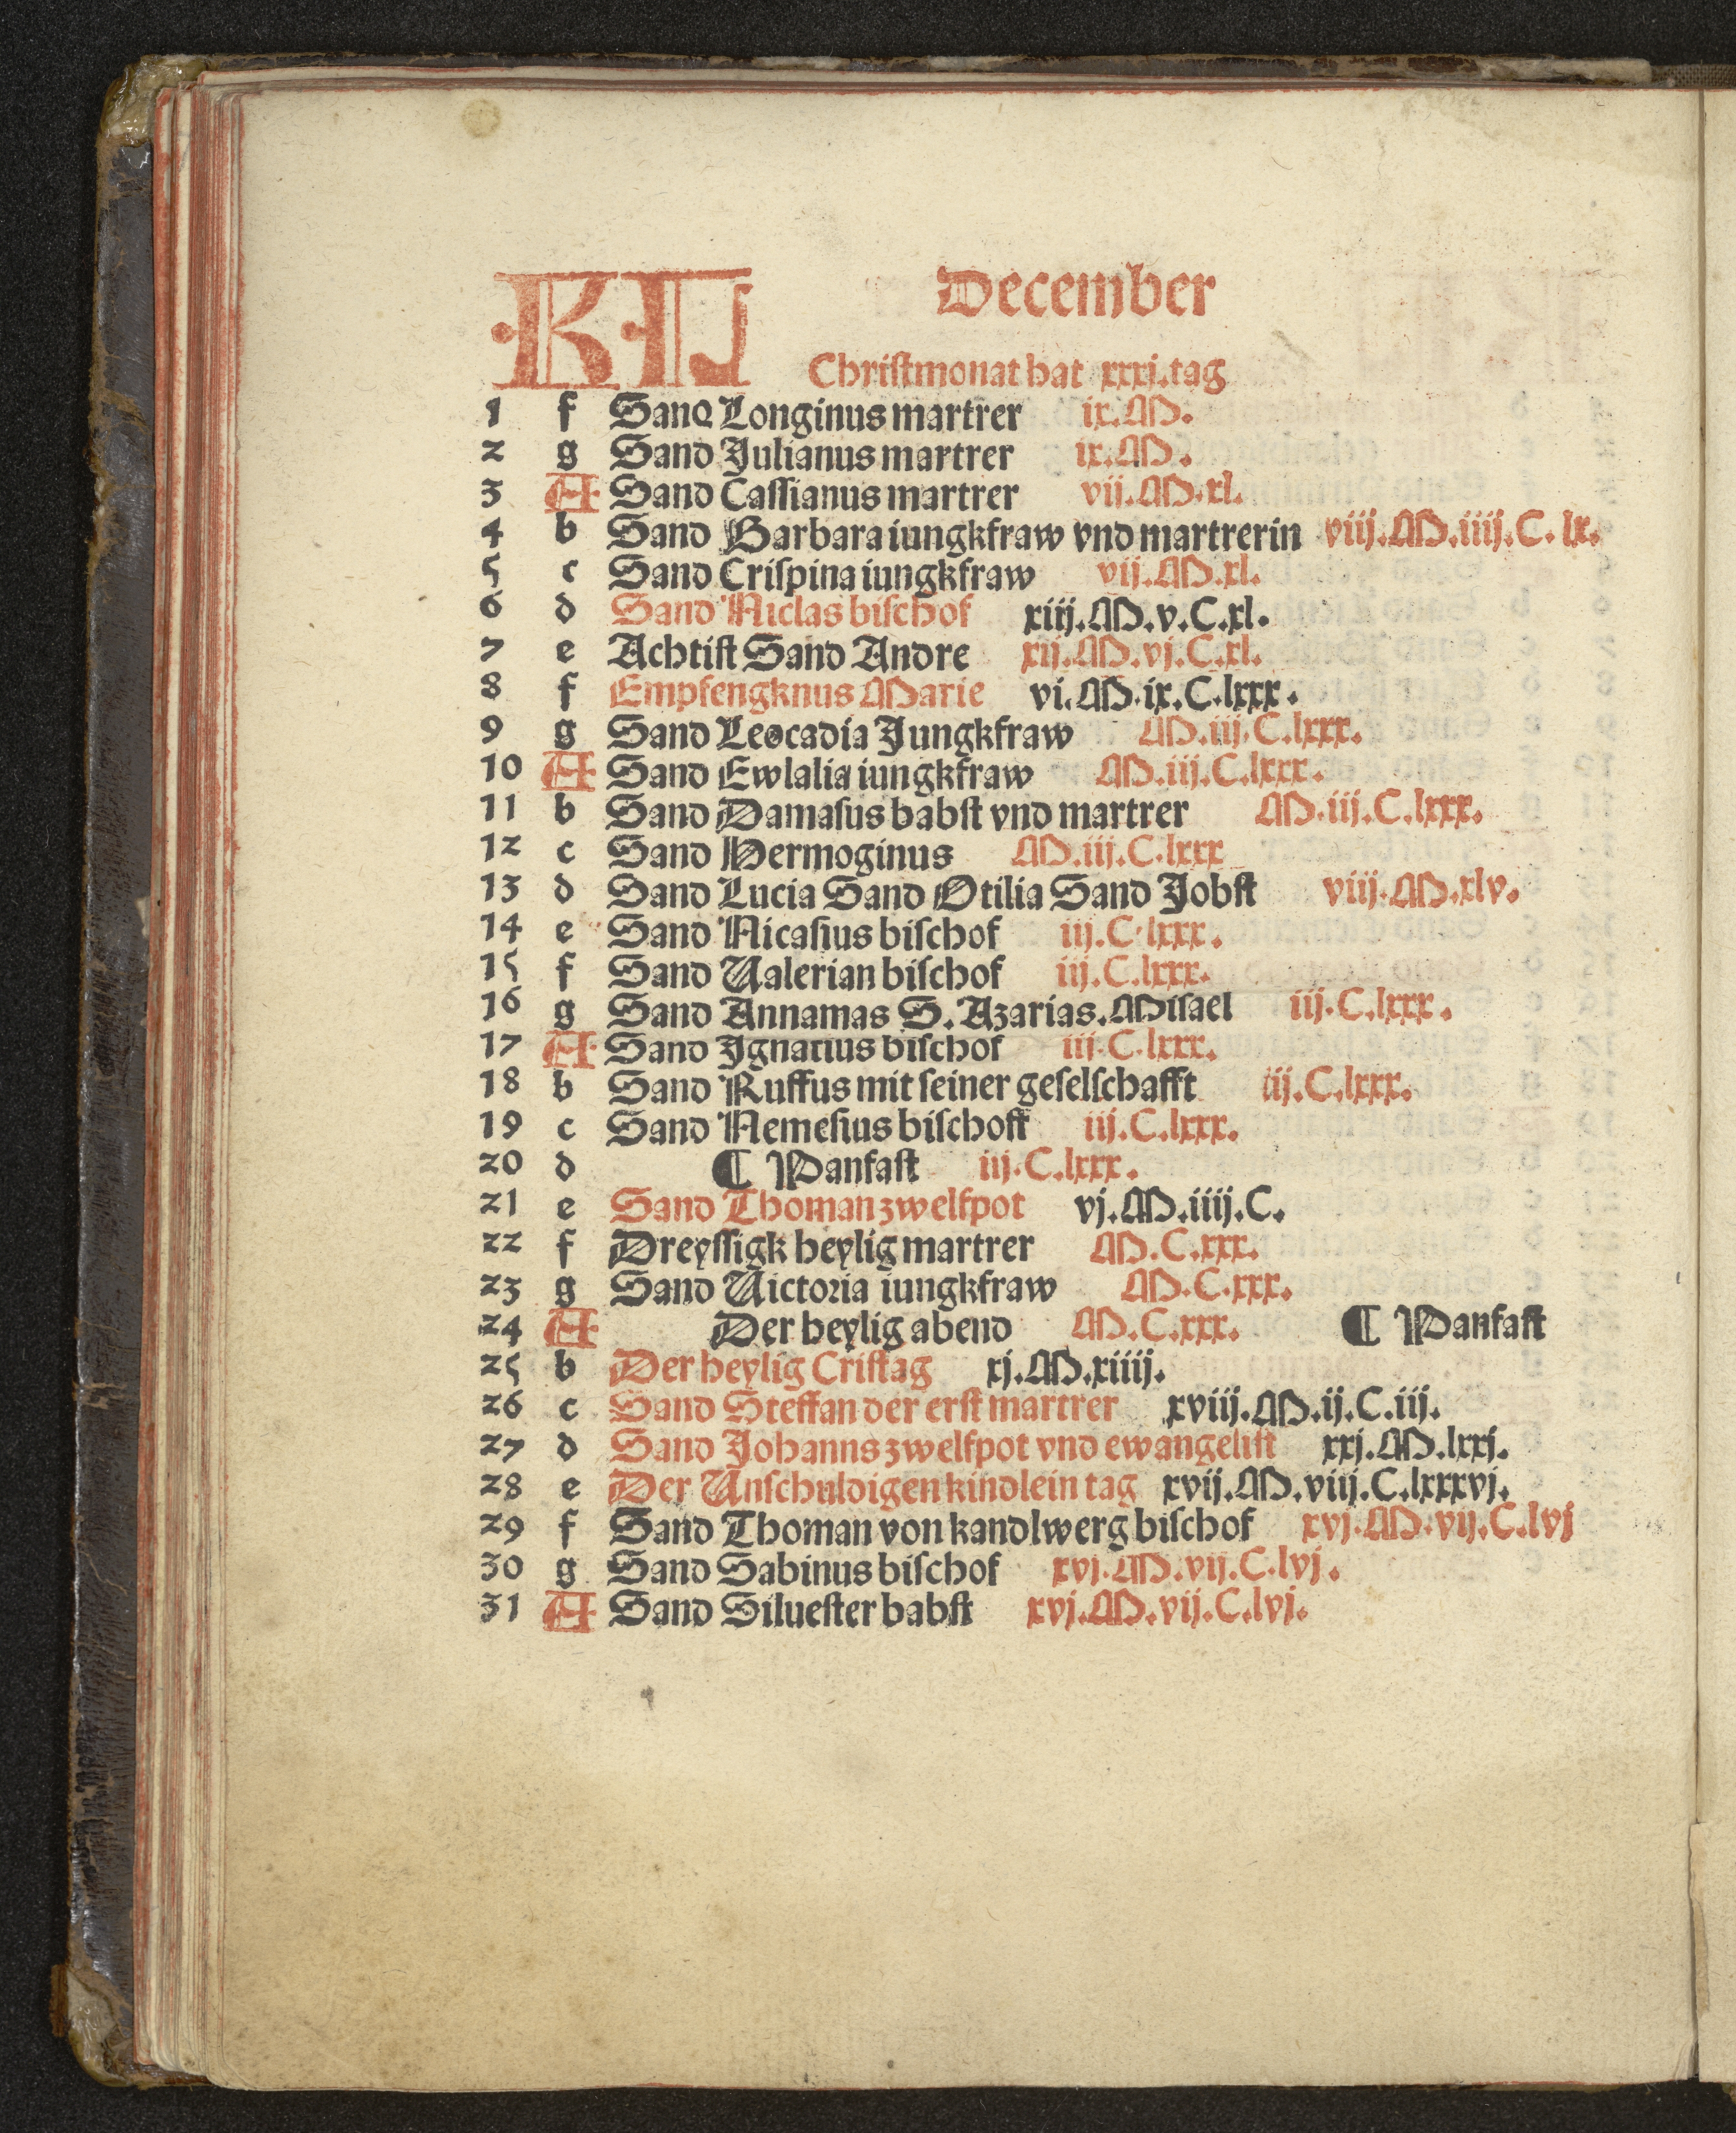 KL December
Christmonat hat xxxj.tag
1 f Sand Longinus martrer ix.M.
2 g Sand Julianus martrer ix.M.
3 A Sand Cassianus martrer vii.M.xl.
4 b Sand Barbara iungkfraw vnd martrerin viij.M.iiij.C.lx.
5 c Sand Crispina iungkfraw vij.M.xl.
6 d Sand Niclas bischof xiij.M.v.C.xl.
7 e Achtist Sand Andre xij.M.vj.C.xl.
8 f Empfengknus Marie vi.M.ix.C.lxxx.
9 g Sand Leocadia Jungkfraw M.iij.C.lxxx.
10 A Sand Ewlalia iungkfraw M.iij.C.lxxx.
11 b Sand Damasus babst vnd martrer M.iij.C.lxxx.
12 c Sand Hermoginus M.iij.C.lxxx
13 d Sand Lucia Sand Otilia Sand Jobst viij.M.xlv.
14 e Sand Nicasius bischof iij.C.lxxx.
15 f Sand Valerian bischof iij.C.lxxx.
16 g Sand Annamas S. Azarias.Misael iij.C.lxxx.
17 A Sand Ignatius bischof iij.C.lxxx.
18 b Sand Ruffus mit seiner geselschafft iij.C.lxxx.
19 c Sand Nemesius bischoff iij.C.lxxx.
20 d ¶ Panfast iij.C.lxxx.
21 e Sand Thoman zwelfpot vj.M.iiij.C.
22 f Dreyssigk heylig martrer M.C.xxx.
23 g Sand Victoria iungkfraw M.C.xxx.
24 A Der heylig abend M.C.xxx. ¶ Panfast
25 b Der heylig Cristag xj.M.xiiij.
26 c Sand Steffan der erst martrer xviij.M.ij.C.iij.
27 d Sand Johanns zwelfpot vnd ewangelist xxj.M.lxxj.
28 e Der Unschuldigen kindlein tag xvij.M.viij.C.lxxxvj.
29 f Sand Thoman von kandlwerg bischof xvj.M.vij.C.lvj
30 g Sand Sabinus bischof xvj.M.vij.C.lvj.
31 A Sand Siluester babst xvj.M.vij.C.lvj.